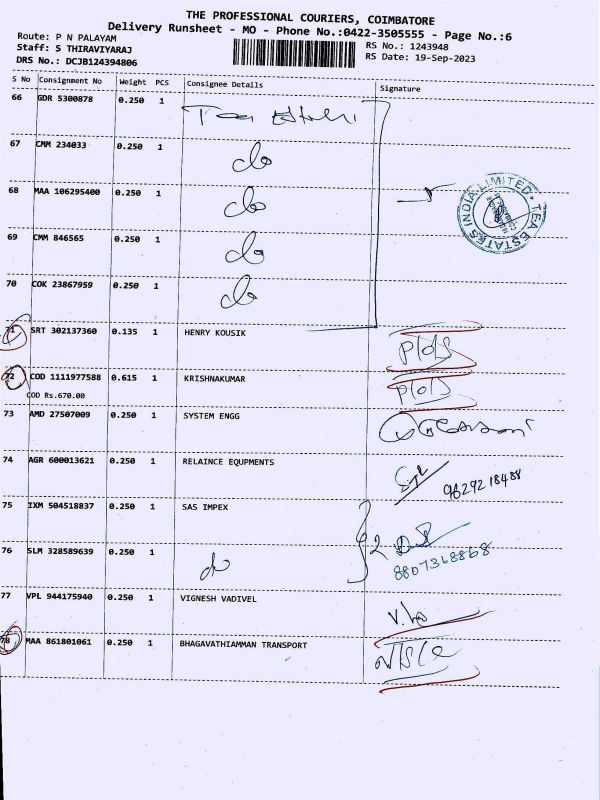 THE PROFESSIONAL COURIERS, COIMBATORE
Delivery Runsheet - MO - Phone No.:0422-3505555 - Page No.:6
Route: P N PALAYAM
RS No.: 1243948
Staff: S THIRAVIYARAJ
RS Date: 19-Sep-2023
DRS No.: DCJB124394806
S No Consignment No Weight PCS Consignee Details Signature
66 GDR 5300878 0.250 1
67 CMM 234033 0.250 1 do
68 MAA 106295400 0.250 1 do
TEA ESTATES INDIA LIMITED
69 CMM 846565 0.250 1 do
70 COK 23867959 0.250 1 do
71 SRT 302137360 0.135 1 HENRY KOUSIK
72 COD 1111977588 0.615 1 KRISHNAKUMAR
COD Rs.670.00
73 AMD 27507009 0.250 1 SYSTEM ENGG
74 AGR 600013621 0.250 1 RELAINCE EQUPMENTS
9629218488
75 IXM 504518837 0.250 1 SAS IMPEX
2
76 SLM 328589639 0.250 1 do
8807368868
77 VPL 944175940 0.250 1 VIGNESH VADIVEL
78 MAA 861801061 0.250 1 BHAGAVATHIAMMAN TRANSPORT